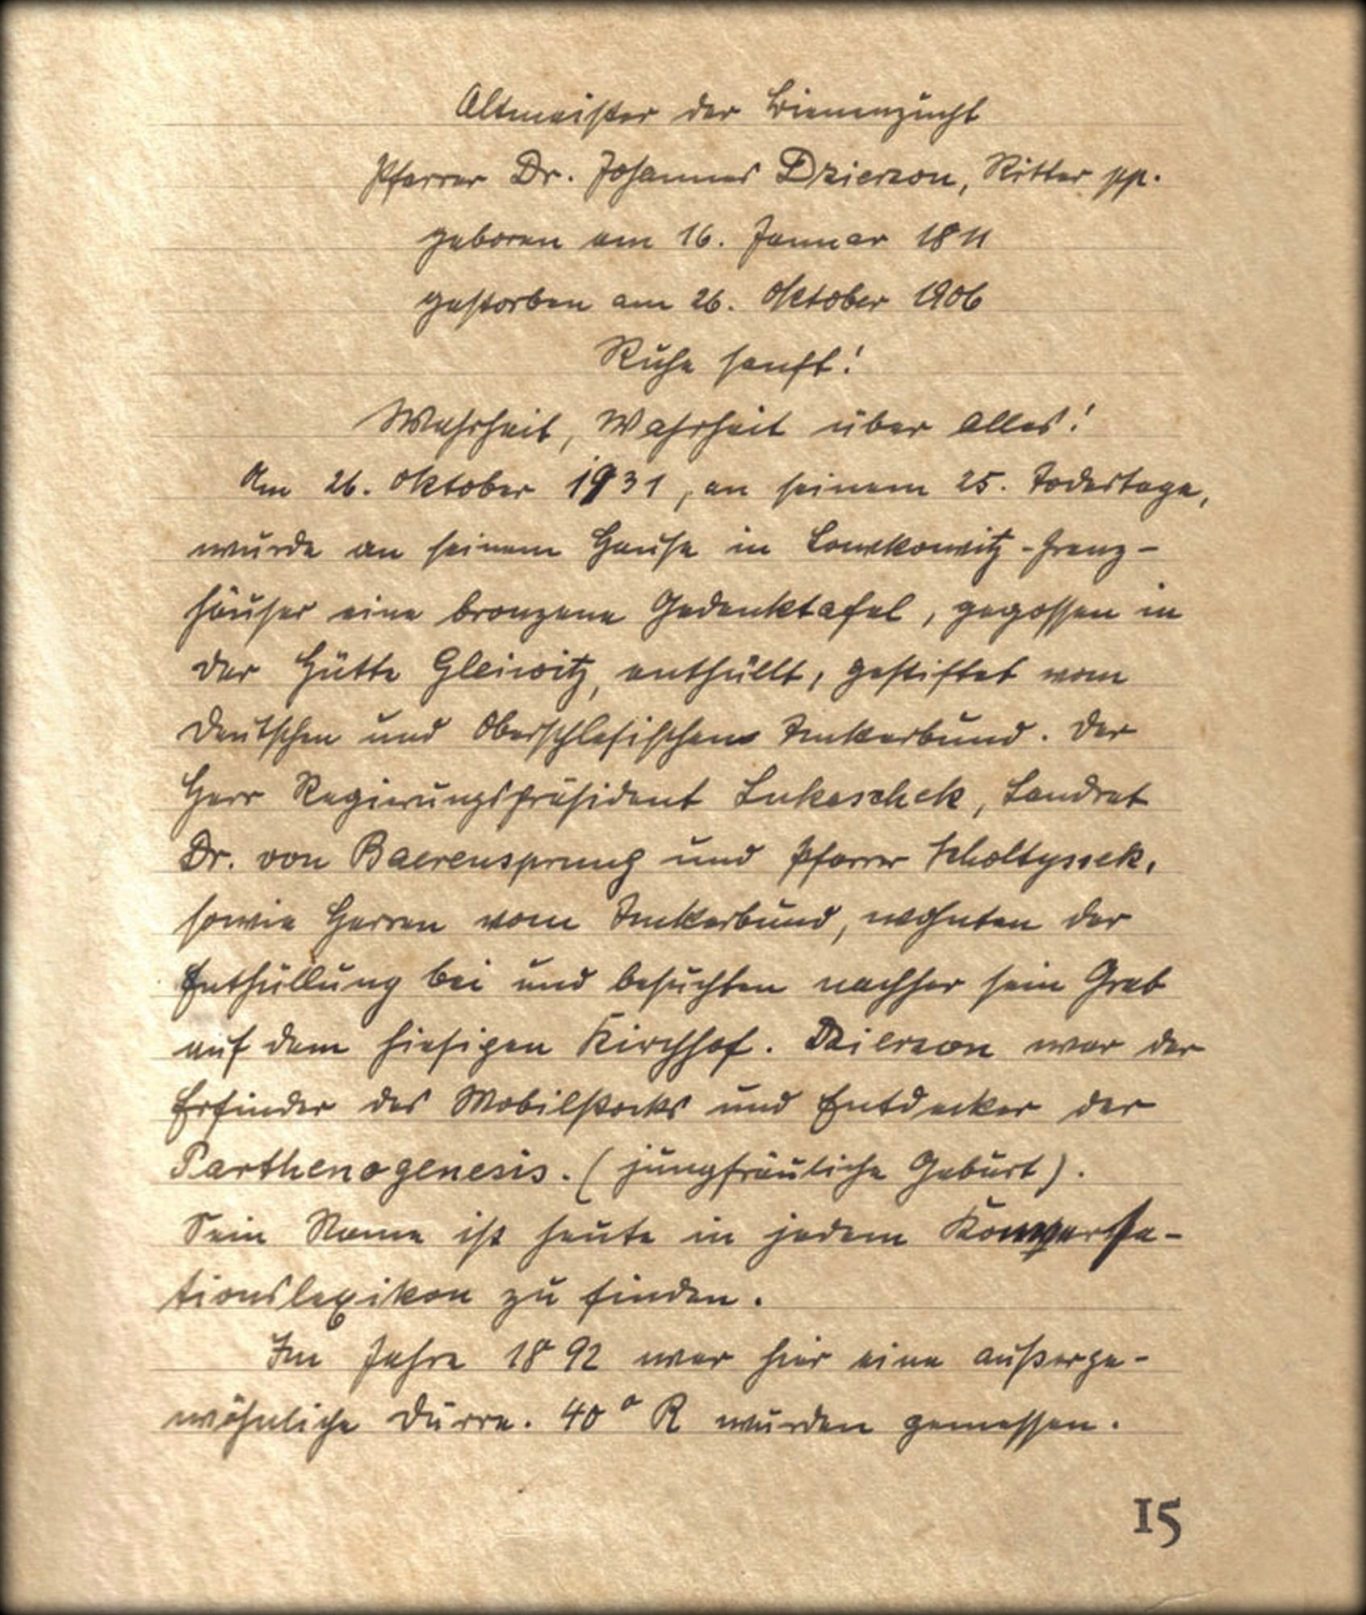 Altmeister der Bienenzucht
Pfarrer Dr. Johannes Dzierzon, Ritter pp.
geboren am 16. Januar 1811
gestorben am 26. Oktober 1906
Ruhe sanft!
Wahrheit, Wahrheit über Alles!
Am 26. Oktober 1931, an seinem 25. Todestage,
wurde an seinem Hause in Lowkowitz-Grenz-
häuser eine bronzene Gedenktafel, gegossen in
der Hütte Gleiwitz, enthüllt, gestiftet vom
Deutschen und Oberschlesischen Imkerbund. Der
Herr Regierungspräsident Lukaschek, Landrat
Dr. von Baerensprung und Pfarrer Scholtyssek,
sowie Herren vom Imkerbund, wohnten der
Enthüllung bei und besuchten nachher sein Grab
auf dem hiesigen Kirchhof. Dzierzon war der
Erfinder des Mobilstocks und Entdecker der
Parthenogenesis. (jungfräuliche Geburt).
Sein Name ist heute in jedem Konversa-
tionslexikon zu finden.
Im Jahre 1892 war hier eine außerge-
wöhnliche Dürre. 40° R wurden gemessen.
15